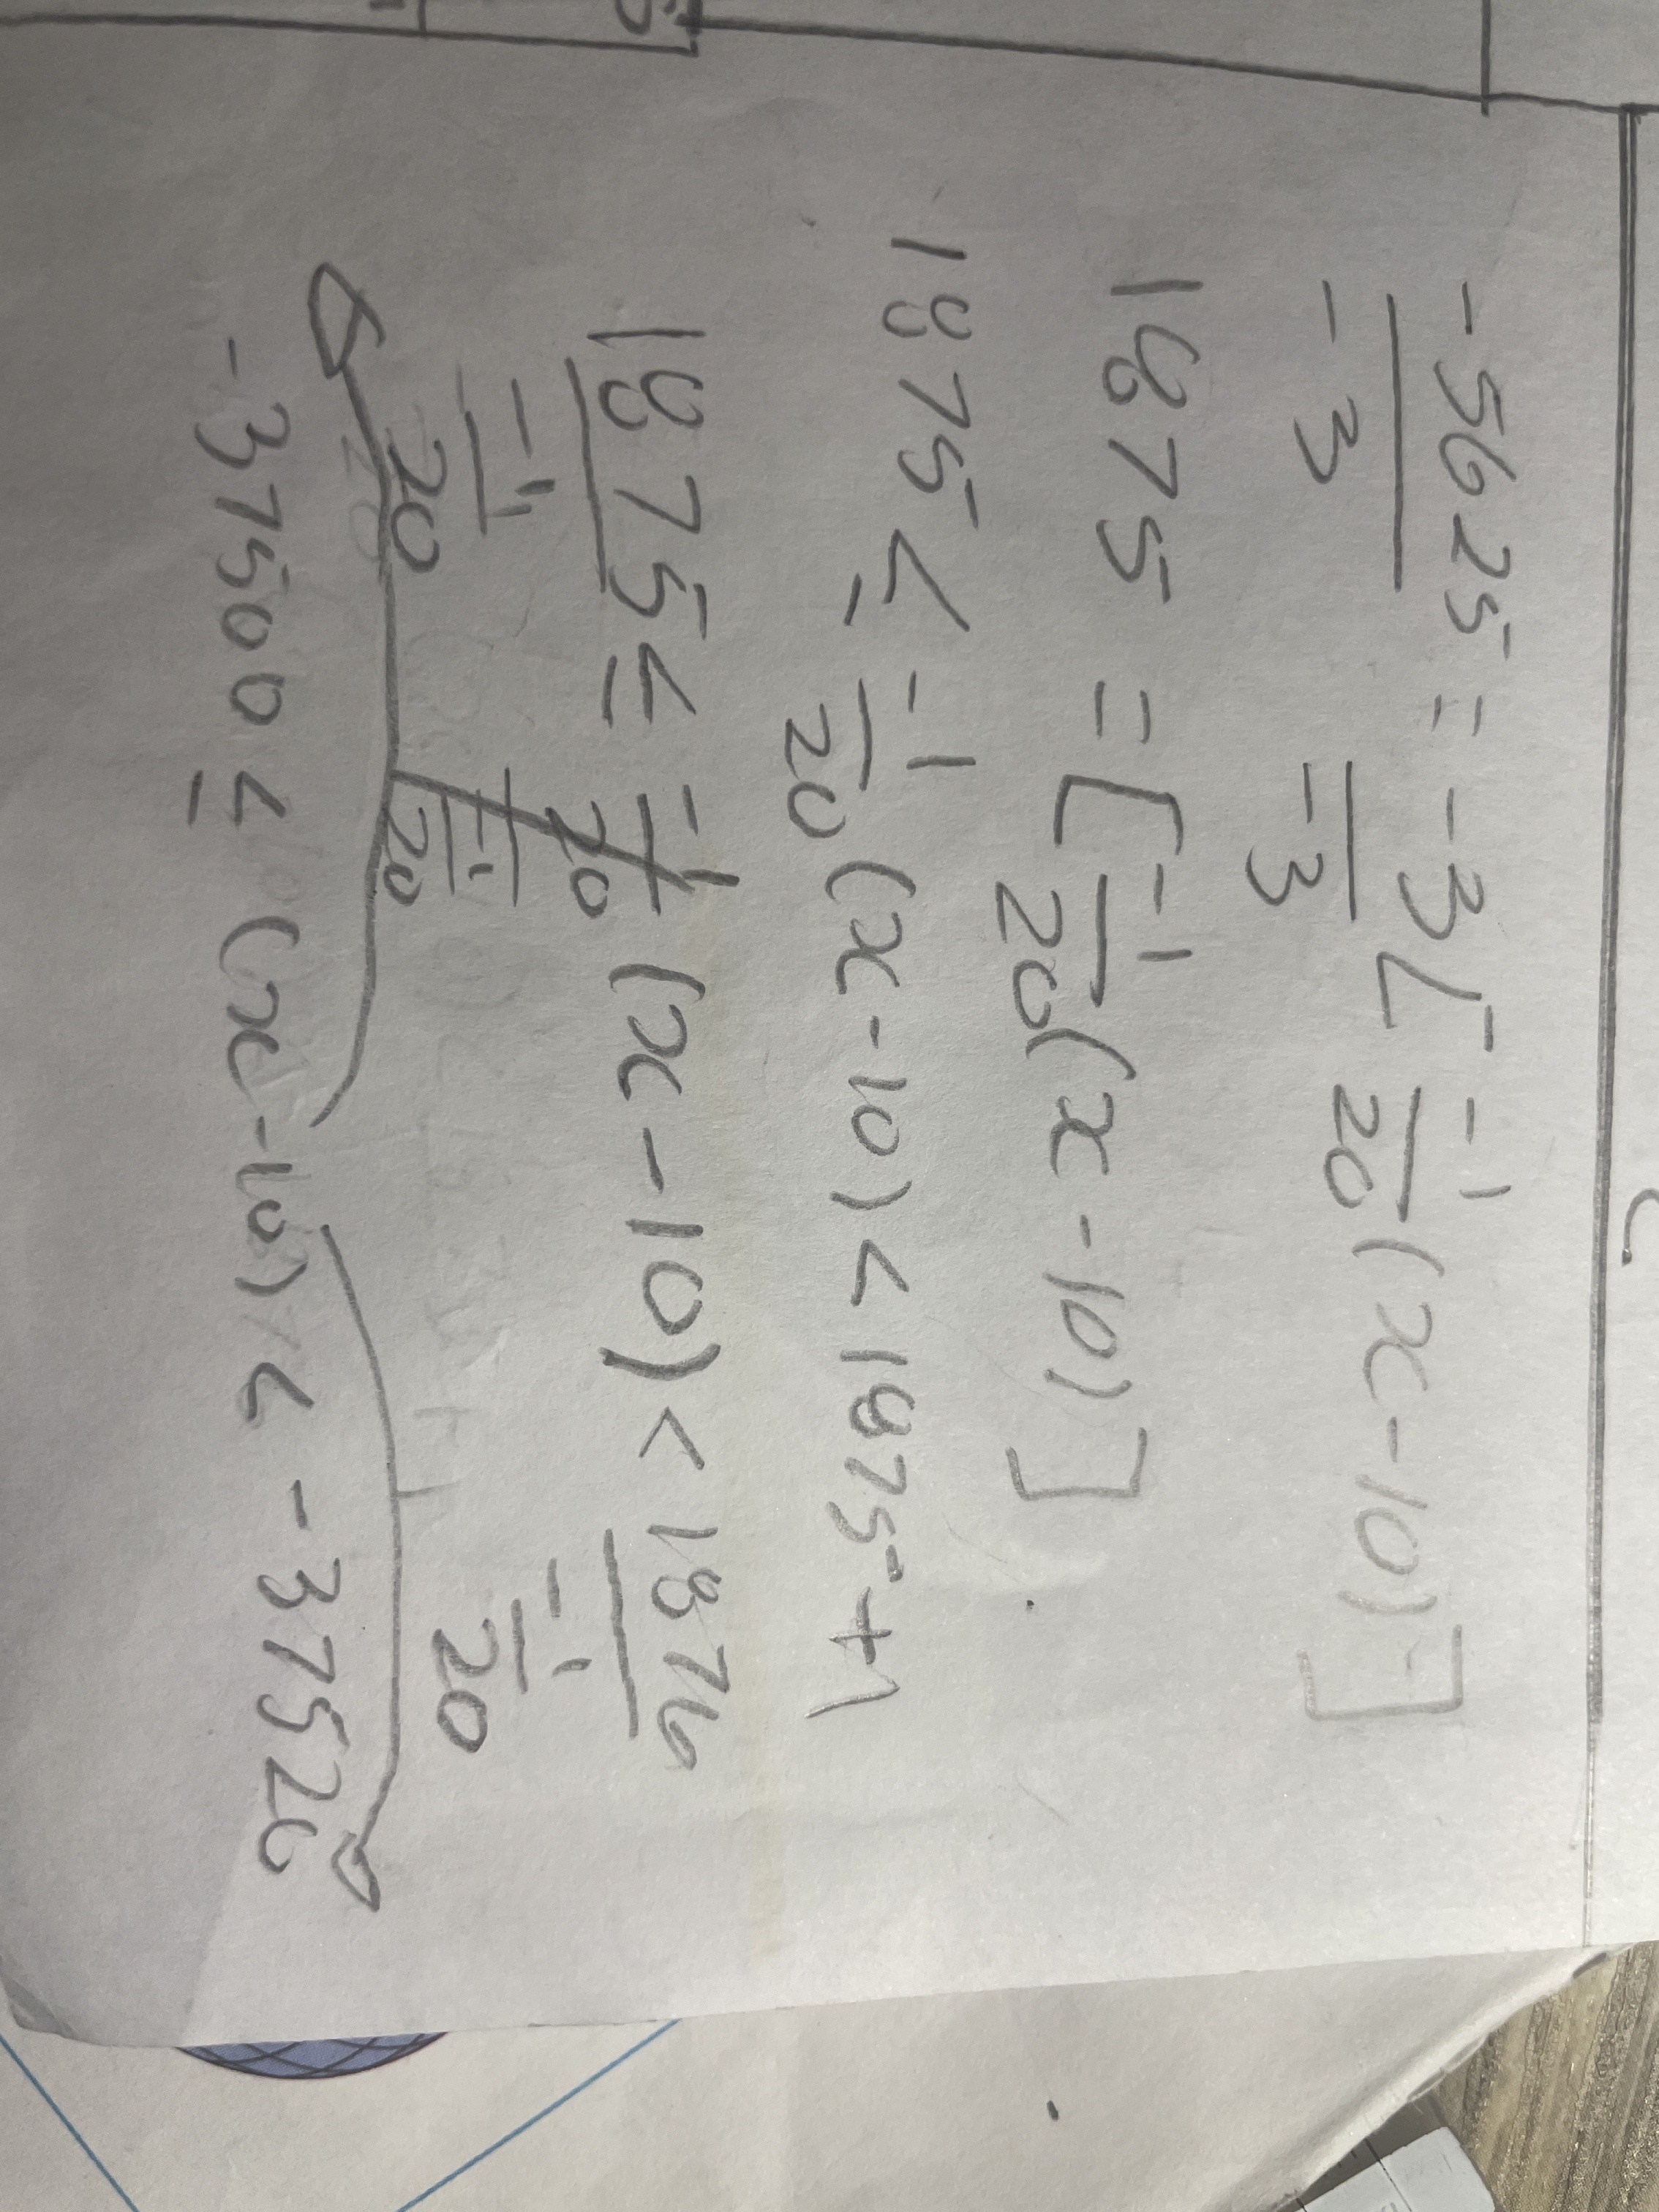 -5625 = -3[-1/20(x-10)]
-3 -3
1875 = [-1/20(x-10)]
1875 ≤ -1/20(x-10) < 1875+1
1875 ≤ -1/20(x-10) < 1876
-1/20 -1/20 -1/20
-37500 ≤ (x-10) < -37520